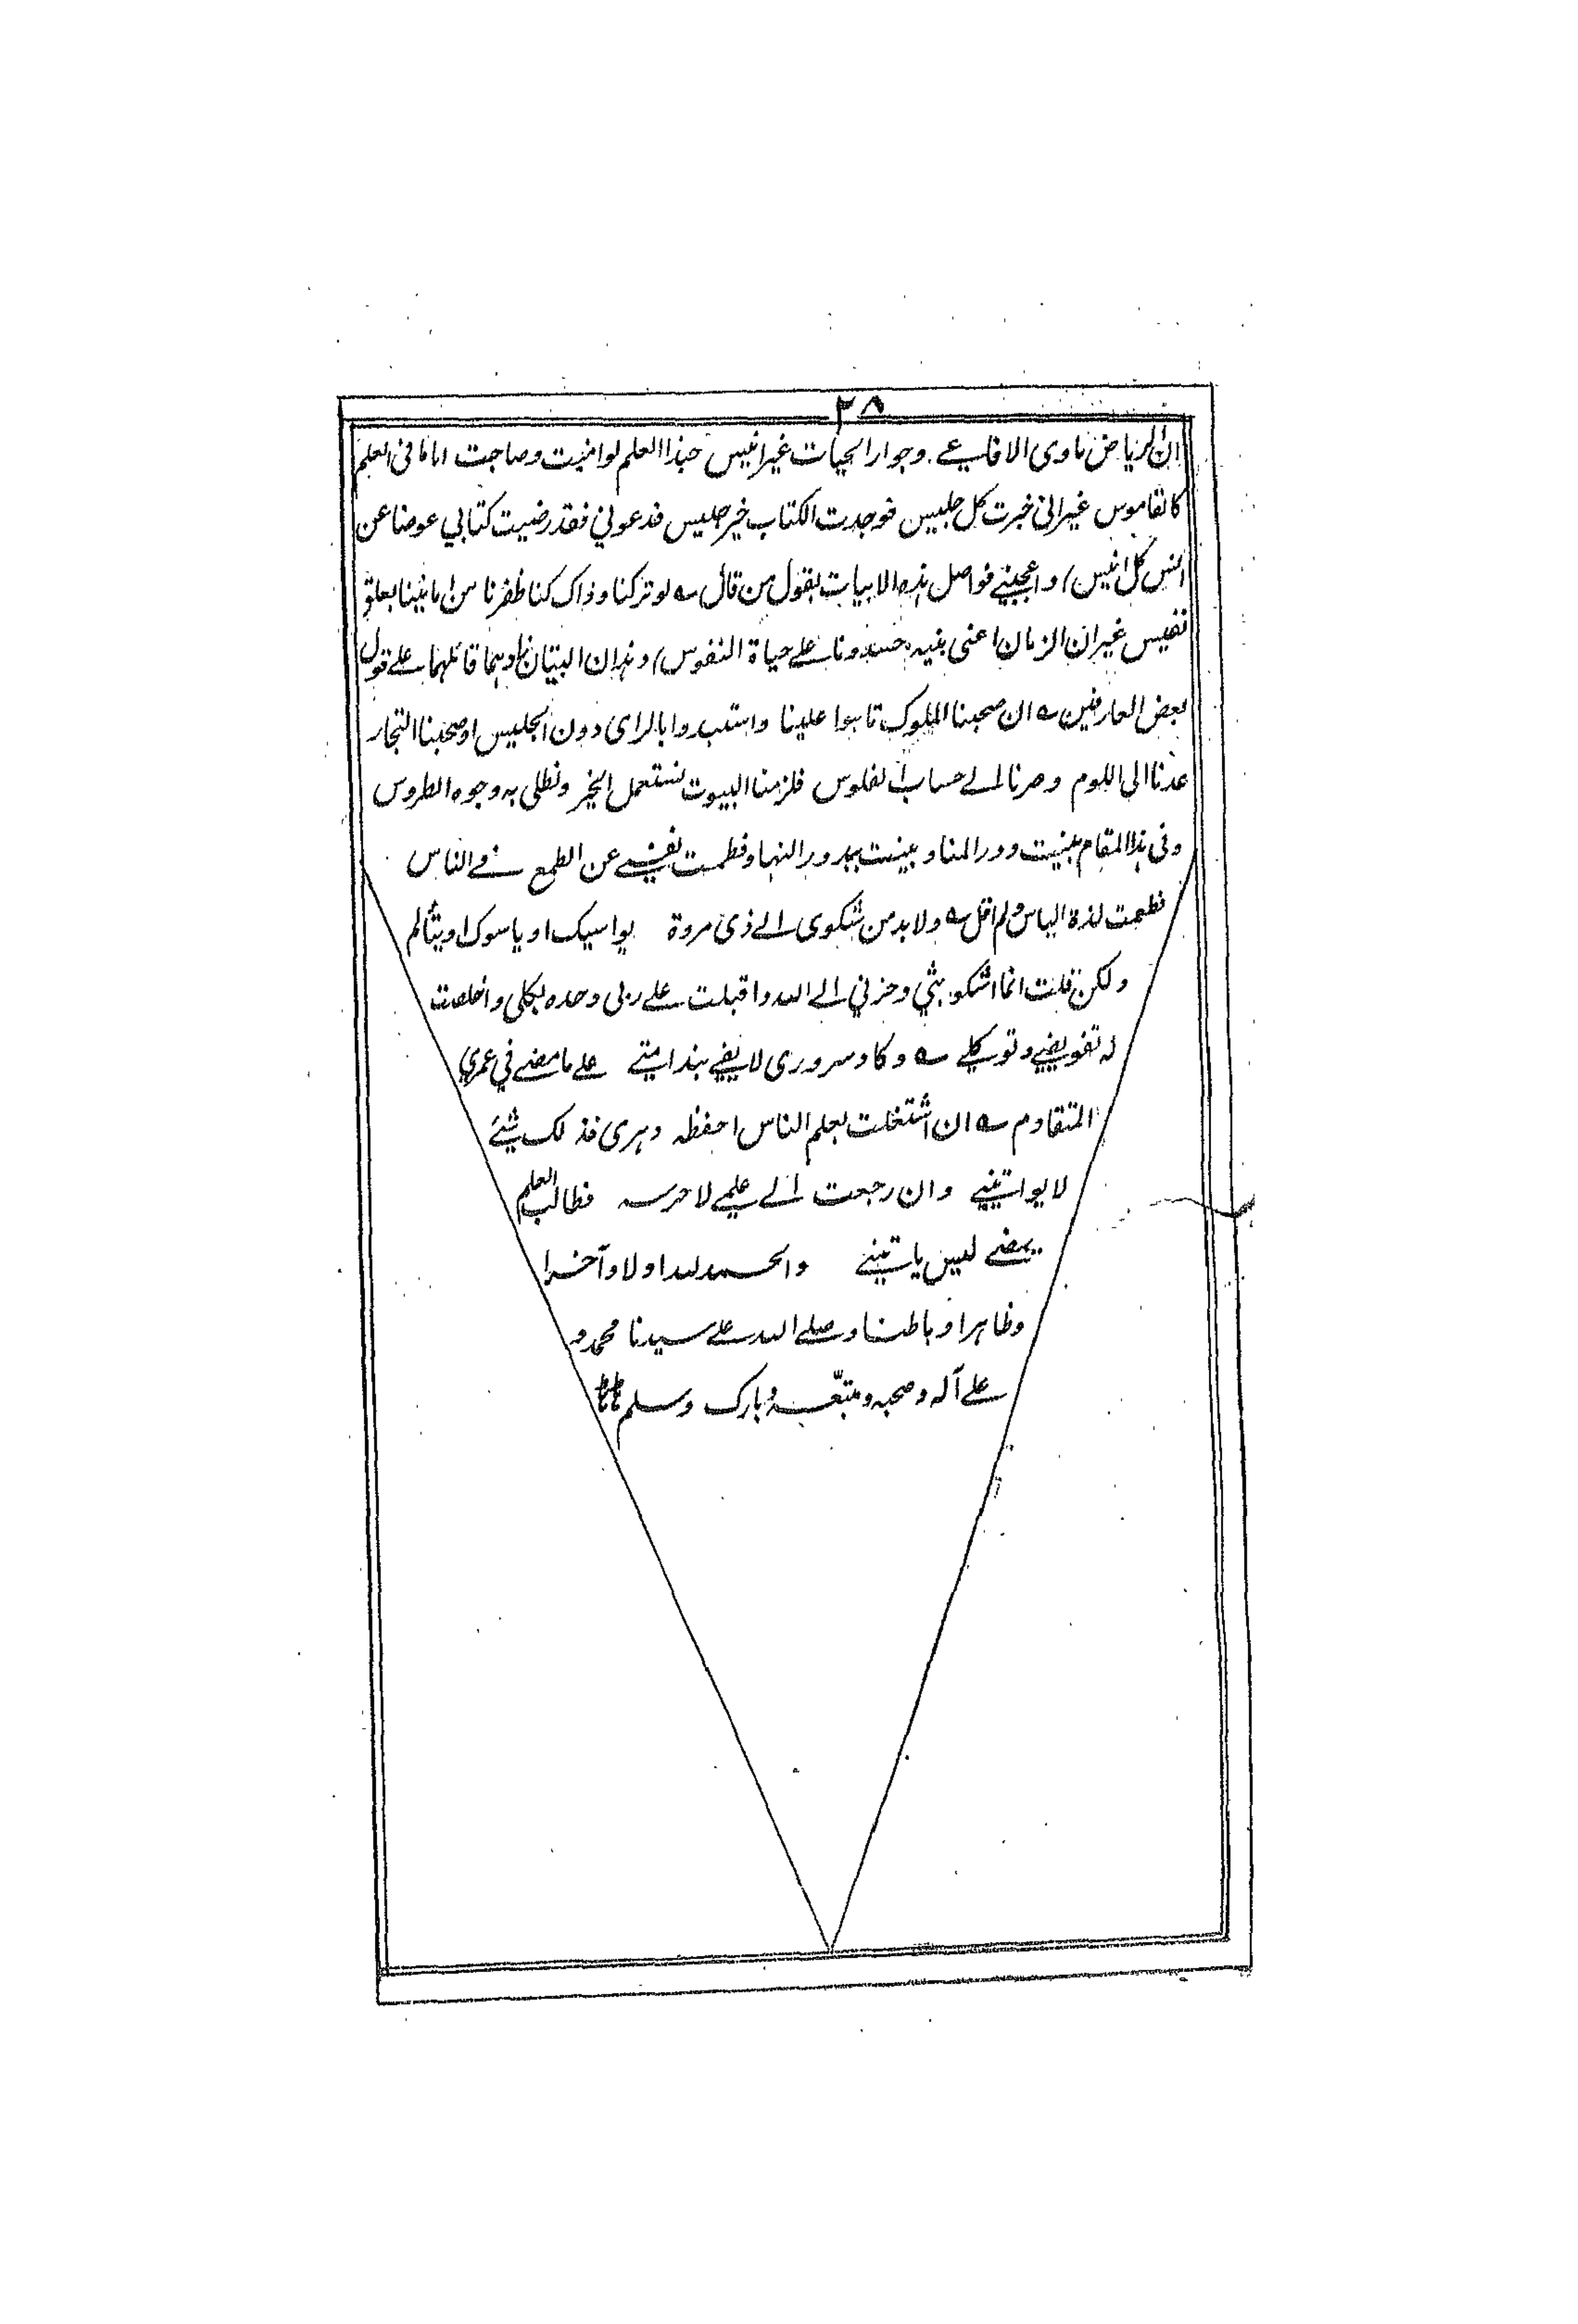 ٢٨
ان الرياض ماوى الافاعي وجوار الحيات غير انيس حبذا العلم لو امنيت وصاحبت اماما في العلم
كالقاموس غير اني خبرت كل جليس فوجدت الكتاب خير جليس فدعوني فقد رضيت كتابي عوضا عن
انس كل انيس) واعجبني فواصل هذه الابيات بقول من قال ؎ لو تركنا وذاك كنا ظفرنا من امانينا بعلق
نفيس غير ان الزمان اعنى بنيه حسدونا على حياة النفوس) وهذان البيتان قائلهما على قول
بعض العارفين ؎ ان صحبنا الملوك تاهوا علينا واستبدوا بالراى دون الجليس او صحبنا التجار
عدنا الى اللوم وصرنا الى حساب الفلوس فلزمنا البيوت نستعمل الحبر ونطلى به وجوه الطروس
وفى هذا المقام بنيت دور المنا وبينت بدور الهنا وفطمت نفسى عن الطمع فى الناس
فطعمت لذة الياس ولم اقل ؎ ولا بد من شكوى الى ذى مروة يواسيك او ياسوك او يتألم
ولكن قلت انما اشكو بثي وحزني الى الله واقبلت على ربى وحده بكلى واخلصت
له تفويضى وتوكلى ؎ وكاد سرورى لا يفى بندامتى على ما مضى في عمري
المتقادم ؎ ان اشتغلت بعلم الناس احفظه دهرى فذلك شئ
لا يواتينى وان رجعت الى علمى لاحرسه فطالب العلم
يمضى ليس ياتينى والحمد لله اولا وآخرا
وظاهرا وباطنا وصلى الله على سيدنا محمد و
على آله وصحبه ومتبعيه وبارك وسلم